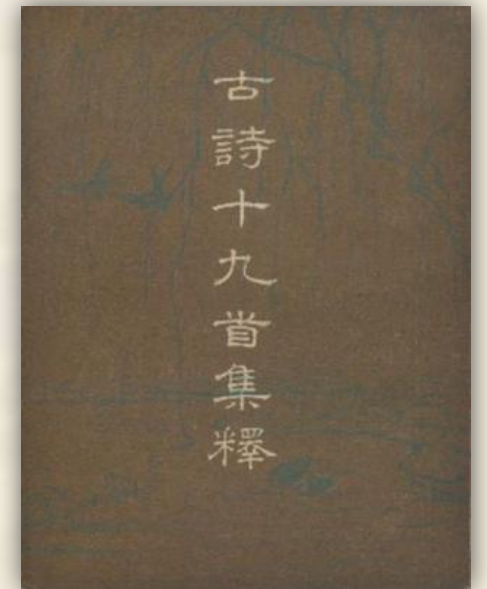 古詩十九首集釋